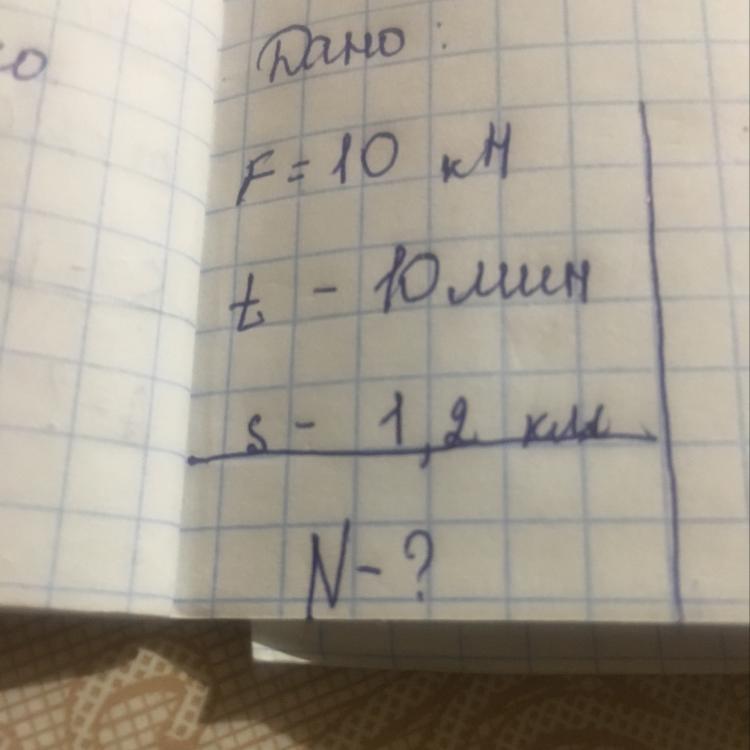 Дано:
F = 10 кН
t - 10 мин
s - 1,2 км
N - ?